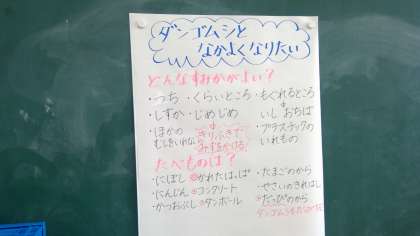 ダンゴムシと
なかよくなりたい
どんなすみかがよい？
・つち ・くらいところ ・もぐれるところ
・しずか ・じめじめ いし おちば
・ほかの むしをいれない きりふきで みずをかける！ ・プラスチックの いれもの
たべものは？
・にぼし かれたはっぱ ・たまごのから
・にんじん コンクリート ・やさいのきれはし
・かつおぶし ダンボール だっぴのから